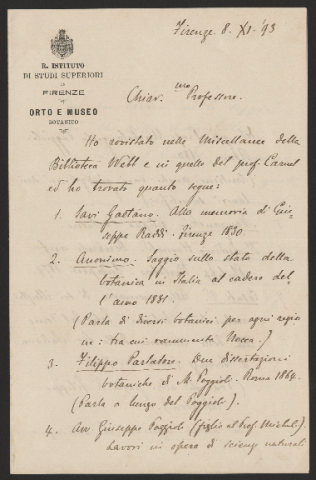 Firenze 8. XI. '93
R. ISTITUTO
DI STUDI SUPERIORI
DI
FIRENZE
ORTO E MUSEO
BOTANICO
Chiar.mo Professore.
Ho rovistato nelle Miscellanee della
Biblioteca Webb e in quelle del prof. Caruel
ed ho trovato quanto segue:
1. Savi Gaetano. Alla memoria di Giu-
seppe Raddi. Firenze 1830
2. Anonimo. Saggio sullo stato della
botanica in Italia al cadere del-
l'anno 1831
(Parla di diversi botanici per ogni regio
ne: tra cui rammenta Nocca.)
3. Filippo Parlatore. Due dissertazioni
botaniche di M. Poggioli. Roma 1864.
(Parla a lungo del Poggioli).
4. Avv Giuseppe Poggioli (figlio al Prof. Michel.).
Lavori in opera di scienze naturali